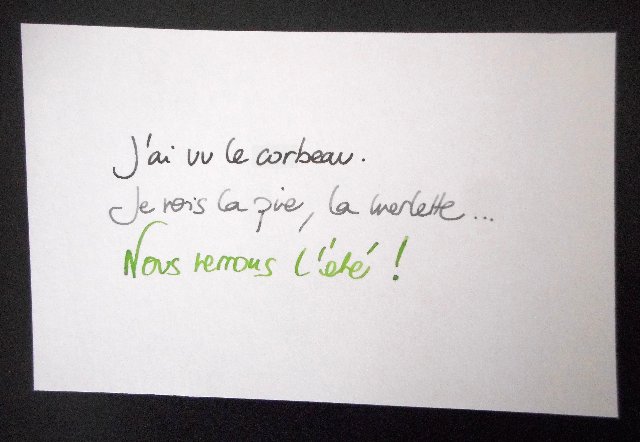 J'ai vu le corbeau.
Je vois la pie, la merlette...
Nous verrons l'été !